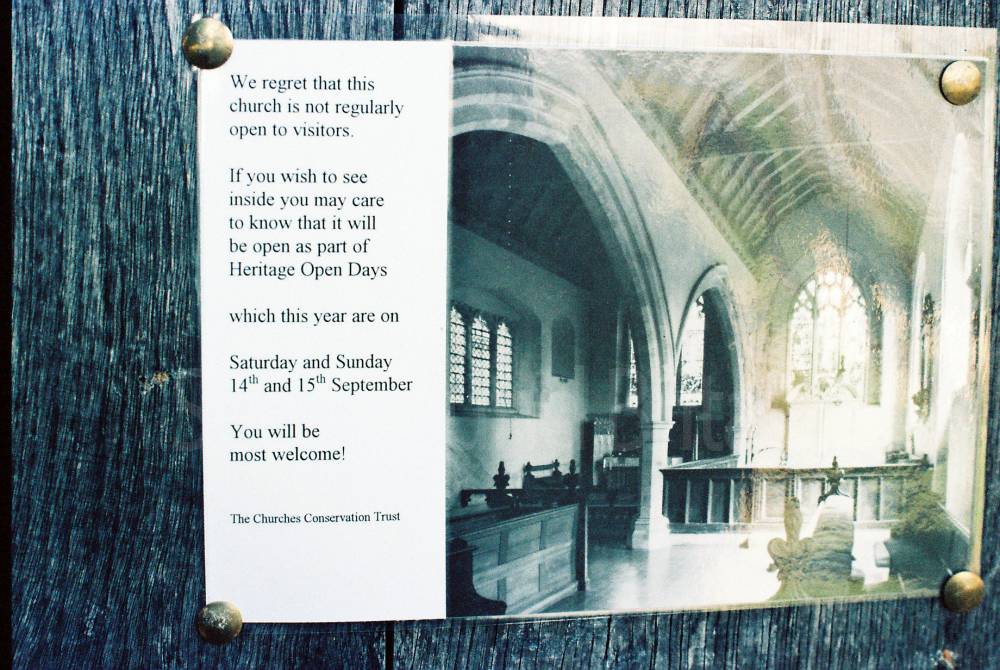 We regret that this
church is not regularly
open to visitors.
If you wish to see
inside you may care
to know that it will
be open as part of
Heritage Open Days
which this year are on
Saturday and Sunday
14th and 15th September
You will be
most welcome!
The Churches Conservation Trust